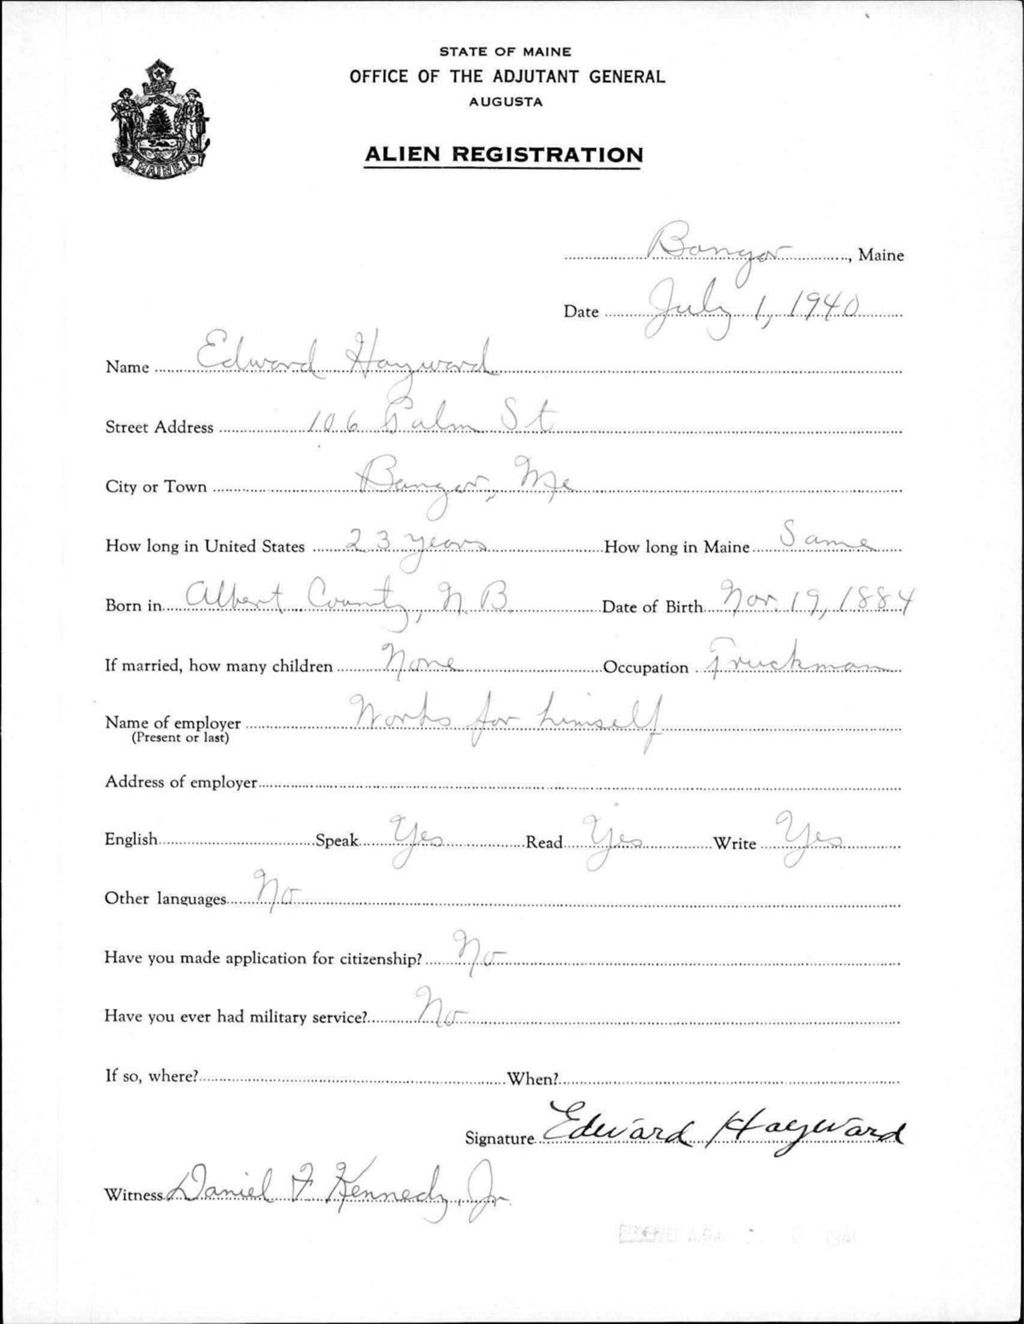 STATE OF MAINE
OFFICE OF THE ADJUTANT GENERAL
AUGUSTA
ALIEN REGISTRATION
MAINE
Bangor, Maine
Date July 1, 1940
Name Edward Hayward
Street Address 106 Palm St
City or Town Bangor, Me
How long in United States 23 years How long in Maine Same
Born in Albert County, N.B. Date of Birth Nov. 19, 1884
If married, how many children None Occupation Truckman
Name of employer Works for himself
(Present or last)
Address of employer
English Speak Yes Read Yes Write Yes
Other languages No
Have you made application for citizenship? No
Have you ever had military service? No
If so, where? When?
Signature Edward Hayward
Witness Daniel F Kennedy, Jr.